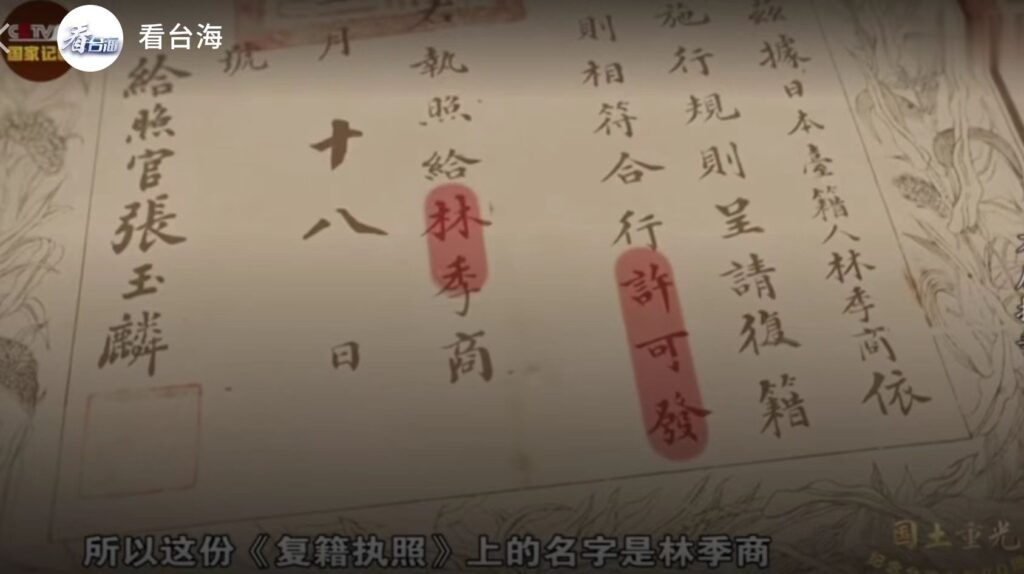 看台海
CCTV
国家记忆
看台海
茲據日本臺籍人林季商依
施行規則呈請復籍
則相符合行許可發
執照給林季商
月十八日
號
給照官張玉麟
國土重光
所以这份《复籍执照》上的名字是林季商